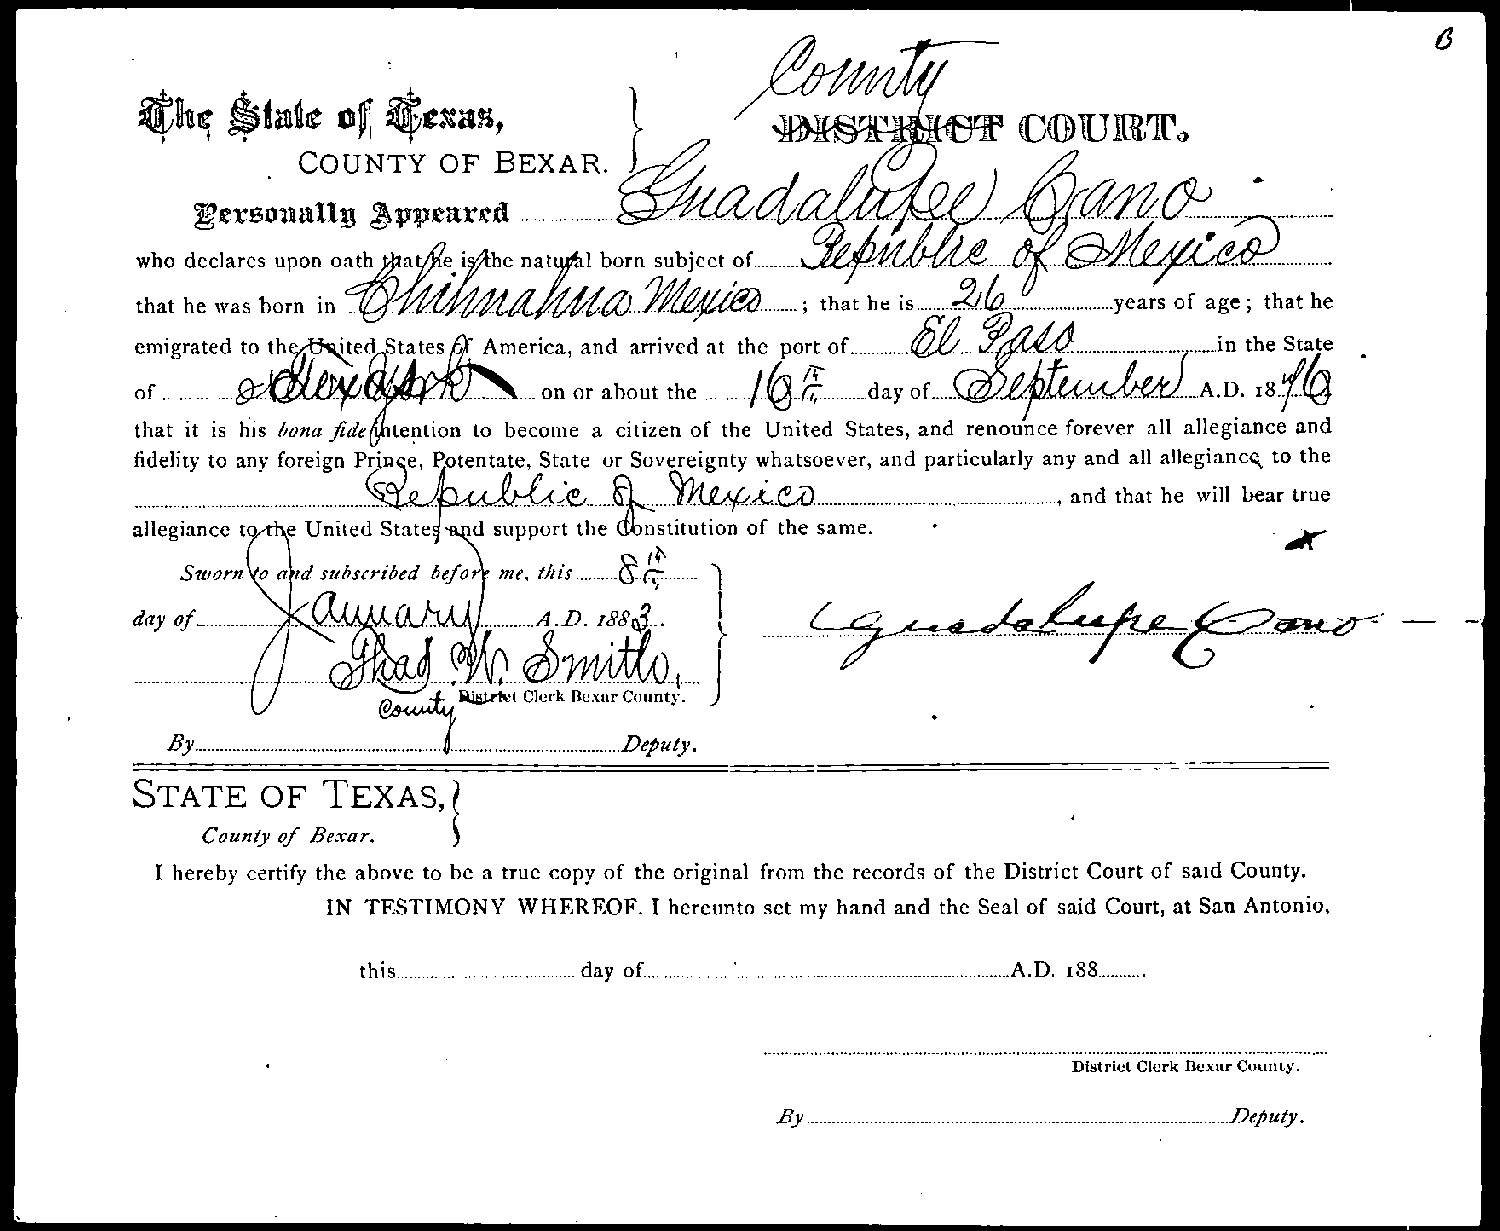 B
The State of Texas,
COUNTY OF BEXAR.
County
DISTRICT COURT.
Personally Appeared Guadalupe Cano
who declares upon oath that he is the natural born subject of Republic of Mexico
that he was born in Chihuahua Mexico ; that he is 26 years of age; that he
emigrated to the United States of America, and arrived at the port of El Paso in the State
of Texas on or about the 16th day of September A.D. 1876
that it is his bona fide intention to become a citizen of the United States, and renounce forever all allegiance and
fidelity to any foreign Prince, Potentate, State or Sovereignty whatsoever, and particularly any and all allegiance to the
Republic of Mexico , and that he will bear true
allegiance to the United States and support the Constitution of the same.
Sworn to and subscribed before me, this 8th
day of January A.D. 1883.
Guadalupe Cano
Thad W. Smith,
County District Clerk Bexar County.
By Deputy.
STATE OF TEXAS,
County of Bexar.
I hereby certify the above to be a true copy of the original from the records of the District Court of said County.
IN TESTIMONY WHEREOF, I hereunto set my hand and the Seal of said Court, at San Antonio,
this day of A.D. 188
District Clerk Bexar County.
By Deputy.